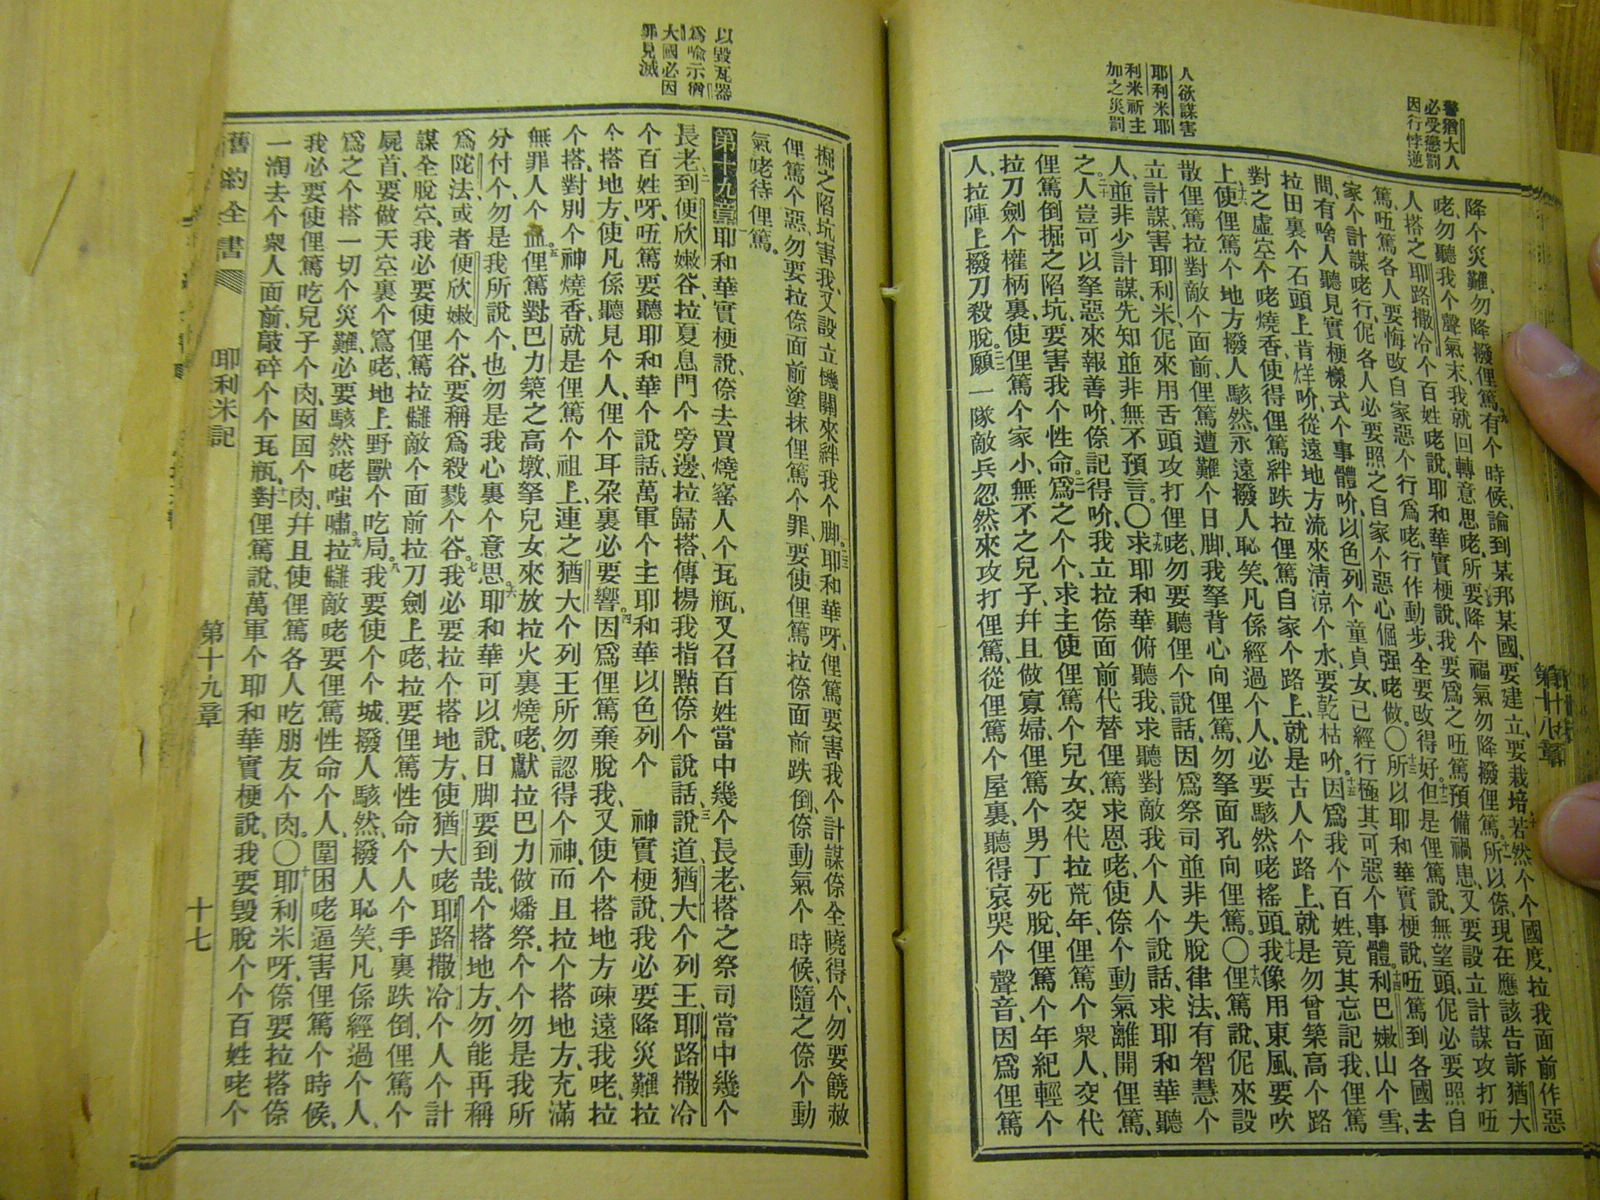 警猶大人
必受懲罰
因行悖逆
人欲謀害
耶利米耶
利米祈主
加之災罰
第十八章
降个災難、勿降撥俚篤、有个時候、論到某邦某國、要建立、要栽培、若然个个國度、拉我面前作惡
咾勿聽我个聲氣末、我就回轉意思咾、所要降个福氣勿降撥俚篤、所以倷現在應該告訴猶大
人搭之耶路撒冷个百姓咾說、耶和華實梗說、我要爲之㕶篤預備禍患、又要設立計謀攻打㕶
篤、㕶篤各人要悔改自家惡个行爲咾、行作動步、全要改得好、但是俚篤說、無望頭、伲必要照自
家个計謀咾行、伲各人必要照之自家个惡心倔强咾做、〇所以耶和華實梗說、㕶篤到各國去
間、有啥人聽見實梗樣式个事體吤、以色列个童貞女、已經行極其可惡个事體、利巴嫩山个雪、
拉田裏个石頭上肯烊吤、從遠地方流來淸涼个水、要乾枯吤、因爲我个百姓、竟其忘記我、俚篤
對之虛空个咾燒香、使得俚篤絆跌拉俚篤自家个路上、就是古人个路上、就是勿曾築高个路
上、使俚篤个地方撥人駭然、永遠撥人恥笑、凡係經過个人、必要駭然咾搖頭、我像用東風、要吹
散俚篤拉對敵个面前、俚篤遭難个日脚、我拏背心向俚篤、勿拏面孔向俚篤、〇俚篤說、伲來設
立計謀、害耶利米、伲來用舌頭攻打俚咾、勿要聽俚个說話、因爲祭司並非失脫律法、有智慧个
人、並非少計謀、先知並非無不預言、〇求耶和華俯聽我、求聽對敵我个人个說話、求耶和華聽
之人豈可以拏惡來報善吤、倷記得吤、我立拉倷面前代替俚篤求恩咾、使倷个動氣離開俚篤、
俚篤倒掘之陷坑、要害我个性命、爲之个个、求主使俚篤个兒女、交代拉荒年、俚篤个衆人、交代
拉刀劍个權柄裏、使俚篤个家小、無不之兒子、幷且做寡婦、俚篤个男丁死脫、俚篤个年紀輕个
人、拉陣上撥刀殺脫、願一隊敵兵忽然來攻打俚篤、從俚篤个屋裏、聽得哀哭个聲音、因爲俚篤
以毀瓦器
爲喩示猶
大國必因
罪見滅
掘之陷坑害我、又設立機關來絆我个脚、耶和華呀、俚篤要害我个計謀、倷全曉得个、勿要饒赦
俚篤个惡、勿要拉倷面前塗抹俚篤个罪、要使俚篤拉倷面前跌倒、倷動氣个時候、隨之倷个動
氣咾待俚篤。
第十九章 耶和華實梗說、倷去買燒窰人个瓦瓶、又召百姓當中幾个長老、搭之祭司當中幾个
長老、到便欣嫩谷、拉夏息門个旁邊、拉歸搭、傳揚我指點倷个說話、說道、猶大个列王、耶路撒冷
个百姓呀、㕶篤要聽耶和華个說話、萬軍个主耶和華以色列个 神實梗說、我必要降災難拉
个搭地方、使凡係聽見个人、俚个耳朶裏必要響、因爲俚篤棄脫我、又使个搭地方疎遠我咾、拉
个搭、對別个神燒香、就是俚篤个祖上、連之猶大个列王所勿認得个神、而且拉个搭地方、充滿
無罪人个血、俚篤對巴力築之高墩、拏兒女來放拉火裏燒咾、獻拉巴力做燔祭、个个勿是我所
分付个、勿是我所說个、也勿是我心裏个意思、耶和華可以說、日脚要到哉、个搭地方、勿能再稱
爲陀法、或者便欣嫩个谷、要稱爲殺戮个谷、我必要拉个搭地方、使猶大咾耶路撒冷个人个計
謀全脫空、我必要使俚篤拉讎敵个面前、拉刀劍上咾、拉要俚篤性命个人个手裏跌倒、俚篤个
屍首、要做天空裏个窵咾、地上野獸个吃局、我要使个个城、撥人駭然、撥人恥笑、凡係經過个人、
爲之个搭一切个災難、必要駭然咾嗤嘯、拉讎敵咾要俚篤性命个人、圍困咾逼害俚篤个時候、
我必要使俚篤吃兒子个肉、囡囝个肉、幷且使俚篤各人吃朋友个肉、〇耶利米呀、倷要拉搭倷
一淘去个衆人面前、敲碎个个瓦瓶、對俚篤說、萬軍个耶和華實梗說、我要毀脫个个百姓咾个
舊約全書 耶利米記 第十九章 十七